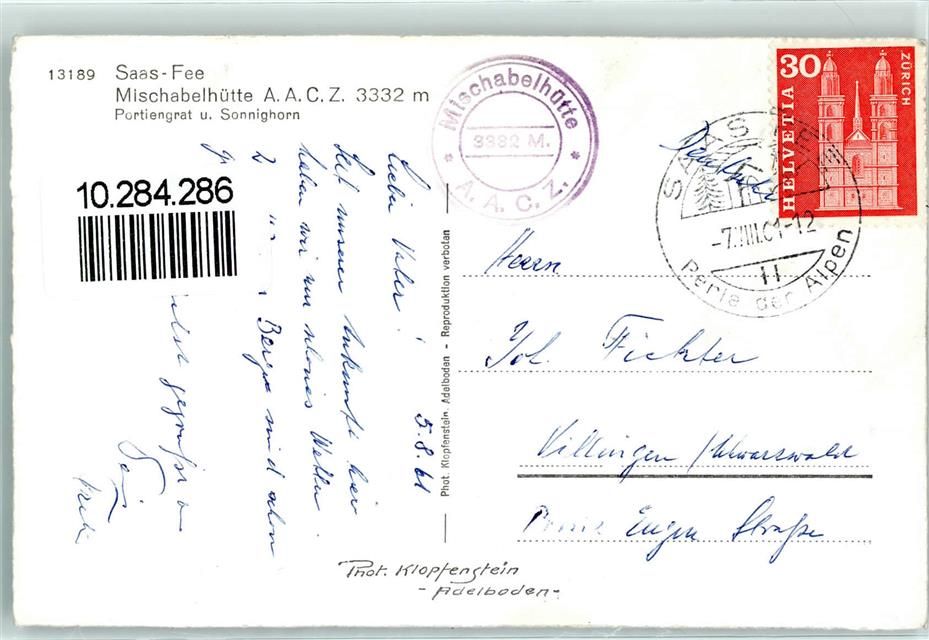 13189 Saas-Fee
Mischabelhütte A. A. C. Z. 3332 m
Portiengrat u. Sonnighorn
10.284.286
Mischabelhütte
3332 M.
* A. A. C. Z. *
30
ZÜRICH
HELVETIA
SAAS-FEE
-7.VIII.61-12
Perle der Alpen
Lieber Vater! 5.8.61
Seit unserer Ankunft hier
haben wir nun schönes Wetter.
2 Berge sind schon
gegrüßt
Herrn
Joh. Fichter
Villingen / Schwarzwald
Prinz Eugen Straße
Phot. Klopfenstein, Adelboden - Reproduktion verboten
Phot. Klopfenstein
- Adelboden -